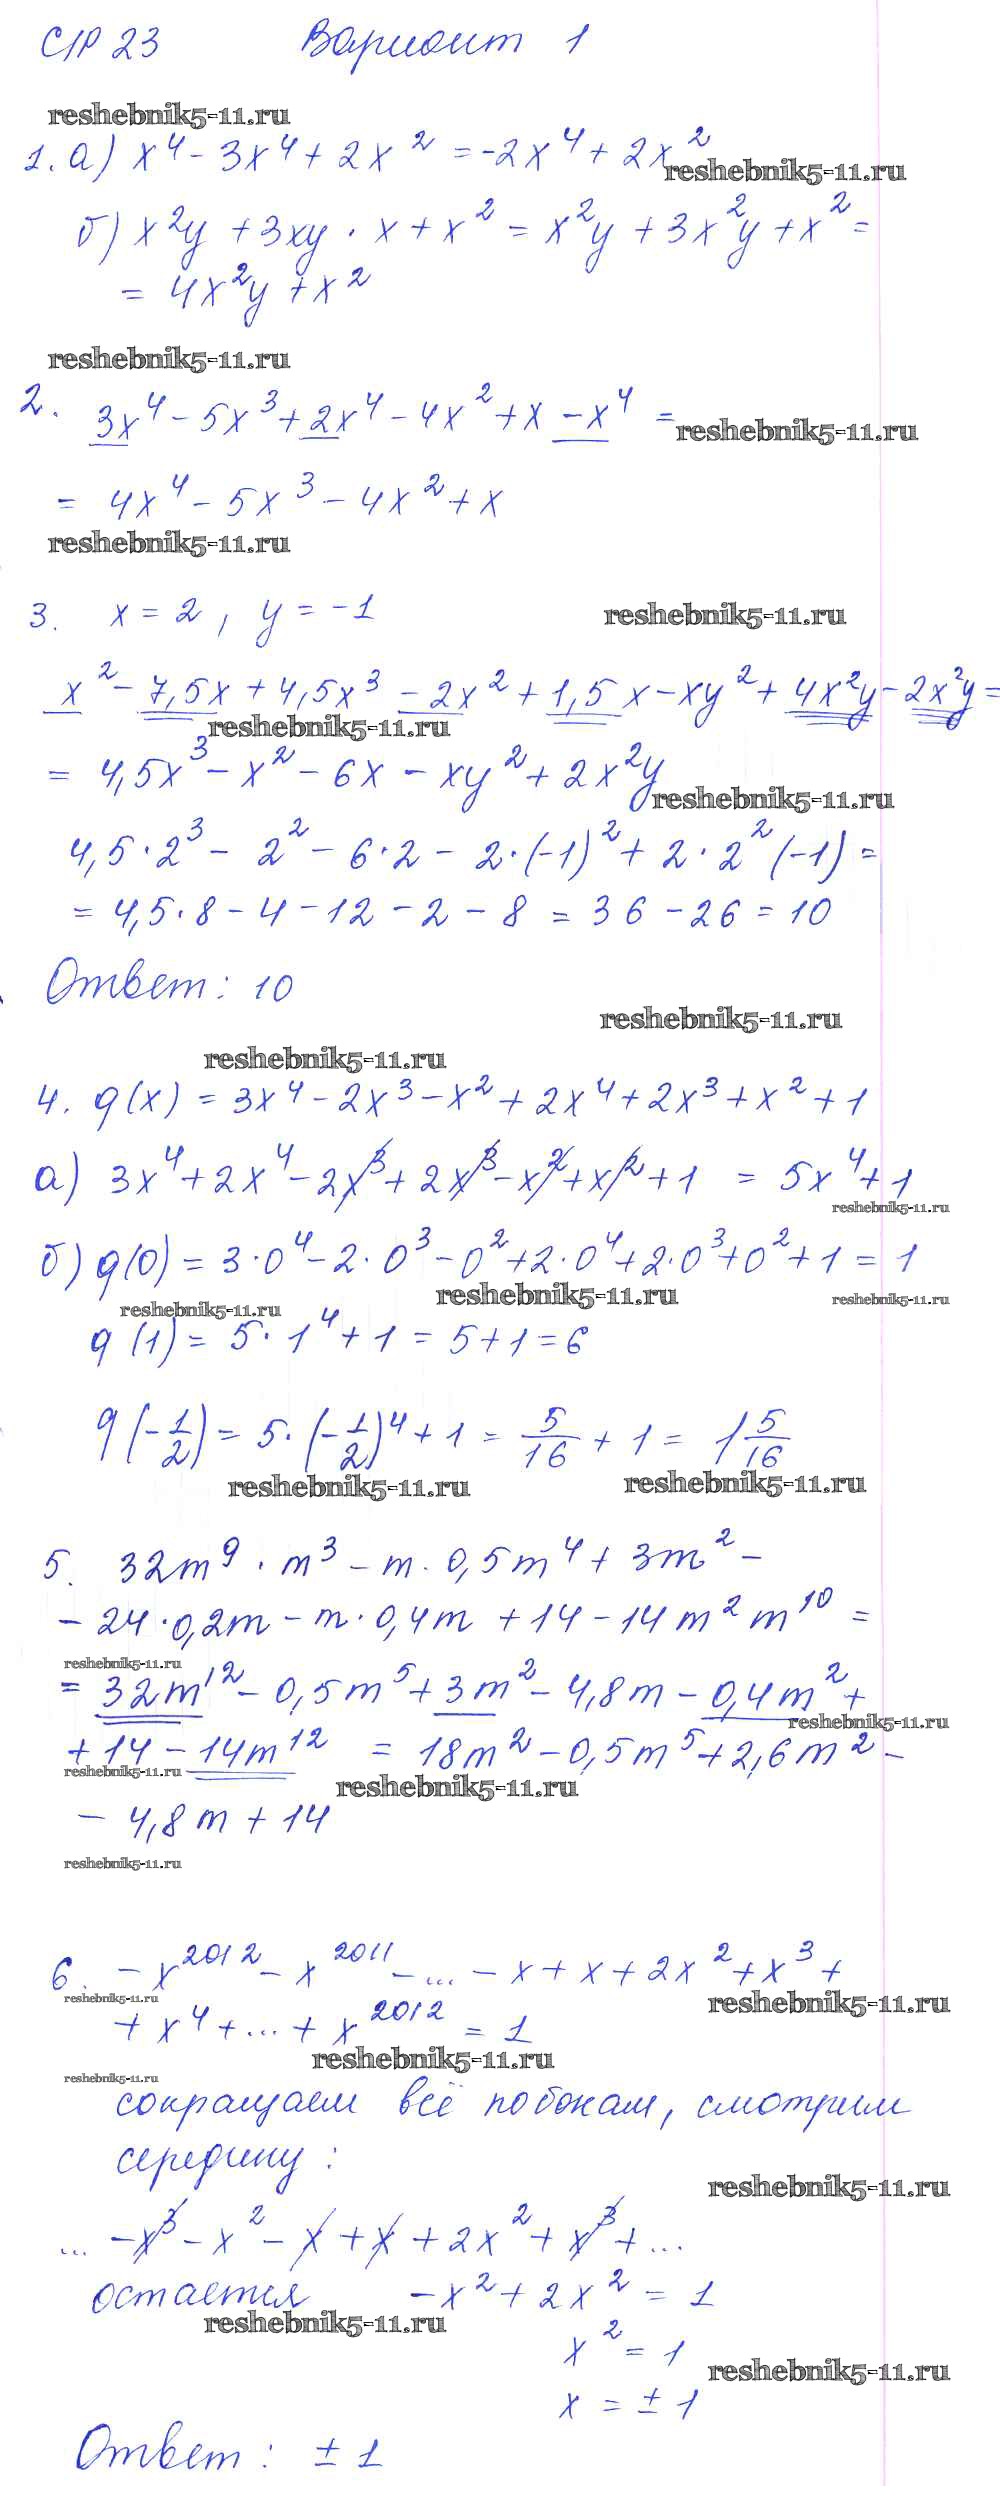 С/Р 23 Вариант 1
reshebnik5-11.ru
1. а) x⁴ - 3x⁴ + 2x² = -2x⁴ + 2x²
reshebnik5-11.ru
б) x²y + 3xy · x + x² = x²y + 3x²y + x² =
= 4x²y + x²
reshebnik5-11.ru
2. 3x⁴ - 5x³ + 2x⁴ - 4x² + x - x⁴ =
reshebnik5-11.ru
= 4x⁴ - 5x³ - 4x² + x
reshebnik5-11.ru
3. x = 2, y = -1
reshebnik5-11.ru
x² - 7,5x + 4,5x³ - 2x² + 1,5x - xy² + 4x²y - 2x²y =
reshebnik5-11.ru
= 4,5x³ - x² - 6x - xy² + 2x²y
reshebnik5-11.ru
4,5 · 2³ - 2² - 6 · 2 - 2 · (-1)² + 2 · 2² (-1) =
= 4,5 · 8 - 4 - 12 - 2 - 8 = 36 - 26 = 10
Ответ: 10
reshebnik5-11.ru
reshebnik5-11.ru
4. g(x) = 3x⁴ - 2x³ - x² + 2x⁴ + 2x³ + x² + 1
а) 3x⁴ + 2x⁴ - 2x³ + 2x³ - x² + x² + 1 = 5x⁴ + 1
reshebnik5-11.ru
б) g(0) = 3 · 0⁴ - 2 · 0³ - 0² + 2 · 0⁴ + 2 · 0³ + 0² + 1 = 1
reshebnik5-11.ru reshebnik5-11.ru
reshebnik5-11.ru
g(1) = 5 · 1⁴ + 1 = 5 + 1 = 6
g(-1/2) = 5 · (-1/2)⁴ + 1 = 5/16 + 1 = 1 5/16
reshebnik5-11.ru reshebnik5-11.ru
5. 32m⁹ · m³ - m · 0,5m⁴ + 3m² -
- 24 · 0,2m - m · 0,4m + 14 - 14m² m¹⁰ =
reshebnik5-11.ru
= 32m¹² - 0,5m⁵ + 3m² - 4,8m - 0,4m² +
reshebnik5-11.ru
+ 14 - 14m¹² = 18m² - 0,5m⁵ + 2,6m² -
reshebnik5-11.ru reshebnik5-11.ru
- 4,8m + 14
reshebnik5-11.ru
6. -x²⁰¹² - x²⁰¹¹ - ... - x + x + 2x² + x³ +
reshebnik5-11.ru reshebnik5-11.ru
+ x⁴ + ... + x²⁰¹² = 1
reshebnik5-11.ru
reshebnik5-11.ru
сокращаем всё по бокам, смотрим
середину:
reshebnik5-11.ru
... -x³ - x² - x + x + 2x² + x³ + ...
остается -x² + 2x² = 1
reshebnik5-11.ru
x² = 1
reshebnik5-11.ru
x = ± 1
Ответ: ± 1